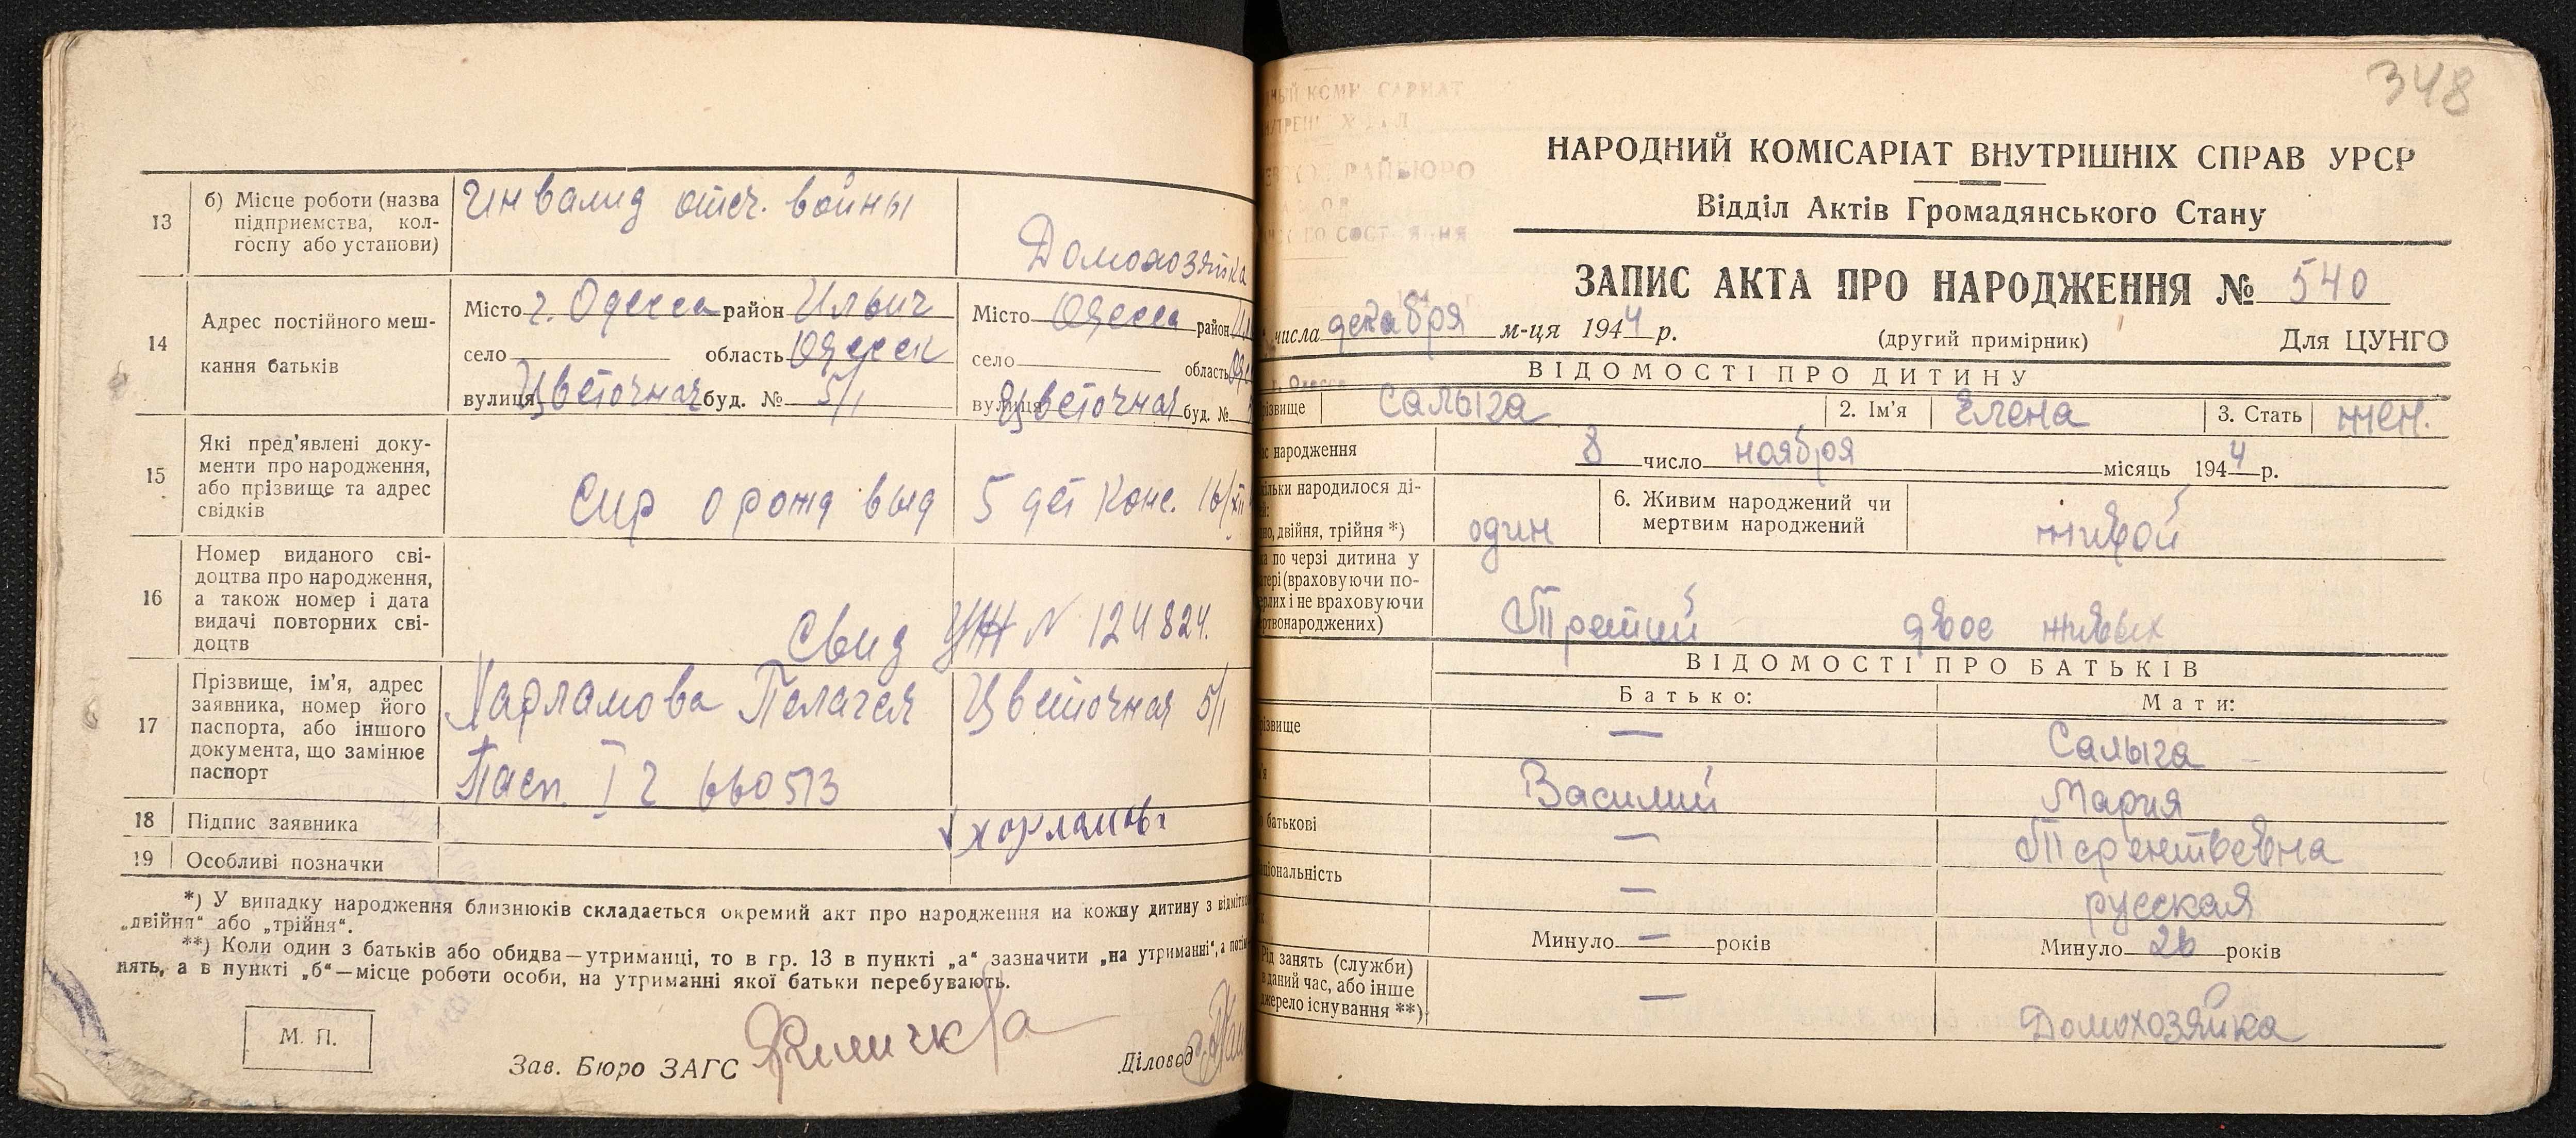 13
б) Місце роботи (назва
підприємства, кол-
госпу або установи)
Инвалид отеч. войны
Домохозяйка
14
Адрес постійного меш-
кання батьків
Місто г. Одесса район Ильич
село область Одесск
вулиця Цветочная буд. № 5/1
Місто Одесса район
село область
вулиця Цветочная буд. №
15
Які пред'явлені доку-
менти про народження,
або прізвище та адрес
свідків
Спр о рожд выд 5 дет конс.
16
Номер виданого сві-
доцтва про народження,
а також номер і дата
видачі повторних сві-
доцтв
Свид УЖ № 124824.
17
Прізвище, ім'я, адрес
заявника, номер його
паспорта, або іншого
документа, що замінює
паспорт
Харламова Пелагея Цветочная 5/1
Пасп. 660513
18
Підпис заявника
харламова
19
Особливі позначки
*) У випадку народження близнюків складається окремий акт про народження на кожну дитину з відміткою
„двійня“ або „трійня“.
**) Коли один з батьків або обидва—утриманці, то в гр. 13 в пункті „а“ зазначити „на утриманні“, а
нять, а в пункті „б“—місце роботи особи, на утриманні якої батьки перебувають.
М. П.
Зав. Бюро ЗАГС
Діловод
348
НАРОДНИЙ КОМІСАРІАТ ВНУТРІШНІХ СПРАВ УРСР
Відділ Актів Громадянського Стану
ЗАПИС АКТА ПРО НАРОДЖЕННЯ № 540
числа декабря м-ця 1944 р.
(другий примірник)
Для ЦУНГО
ВІДОМОСТІ ПРО ДИТИНУ
різвище Салыга
2. Ім'я Елена
3. Стать жен.
народження 8 число ноября місяць 1944 р.
ільки народилося ді-
двійня, трійня *)
один
6. Живим народжений чи
мертвим народжений
живой
ка по черзі дитина у
тері (враховуючи по-
ерлих і не враховуючи
ертвонароджених)
Третий двое живых
ВІДОМОСТІ ПРО БАТЬКІВ
Батько:
Мати:
різвище
—
Салыга
Василий
Мария
батькові
—
Терентьевна
ціональність
—
русская
Минуло — років
Минуло 26 років
Рід занять (служби)
в даний час, або інше
джерело існування **)
—
Домохозяйка